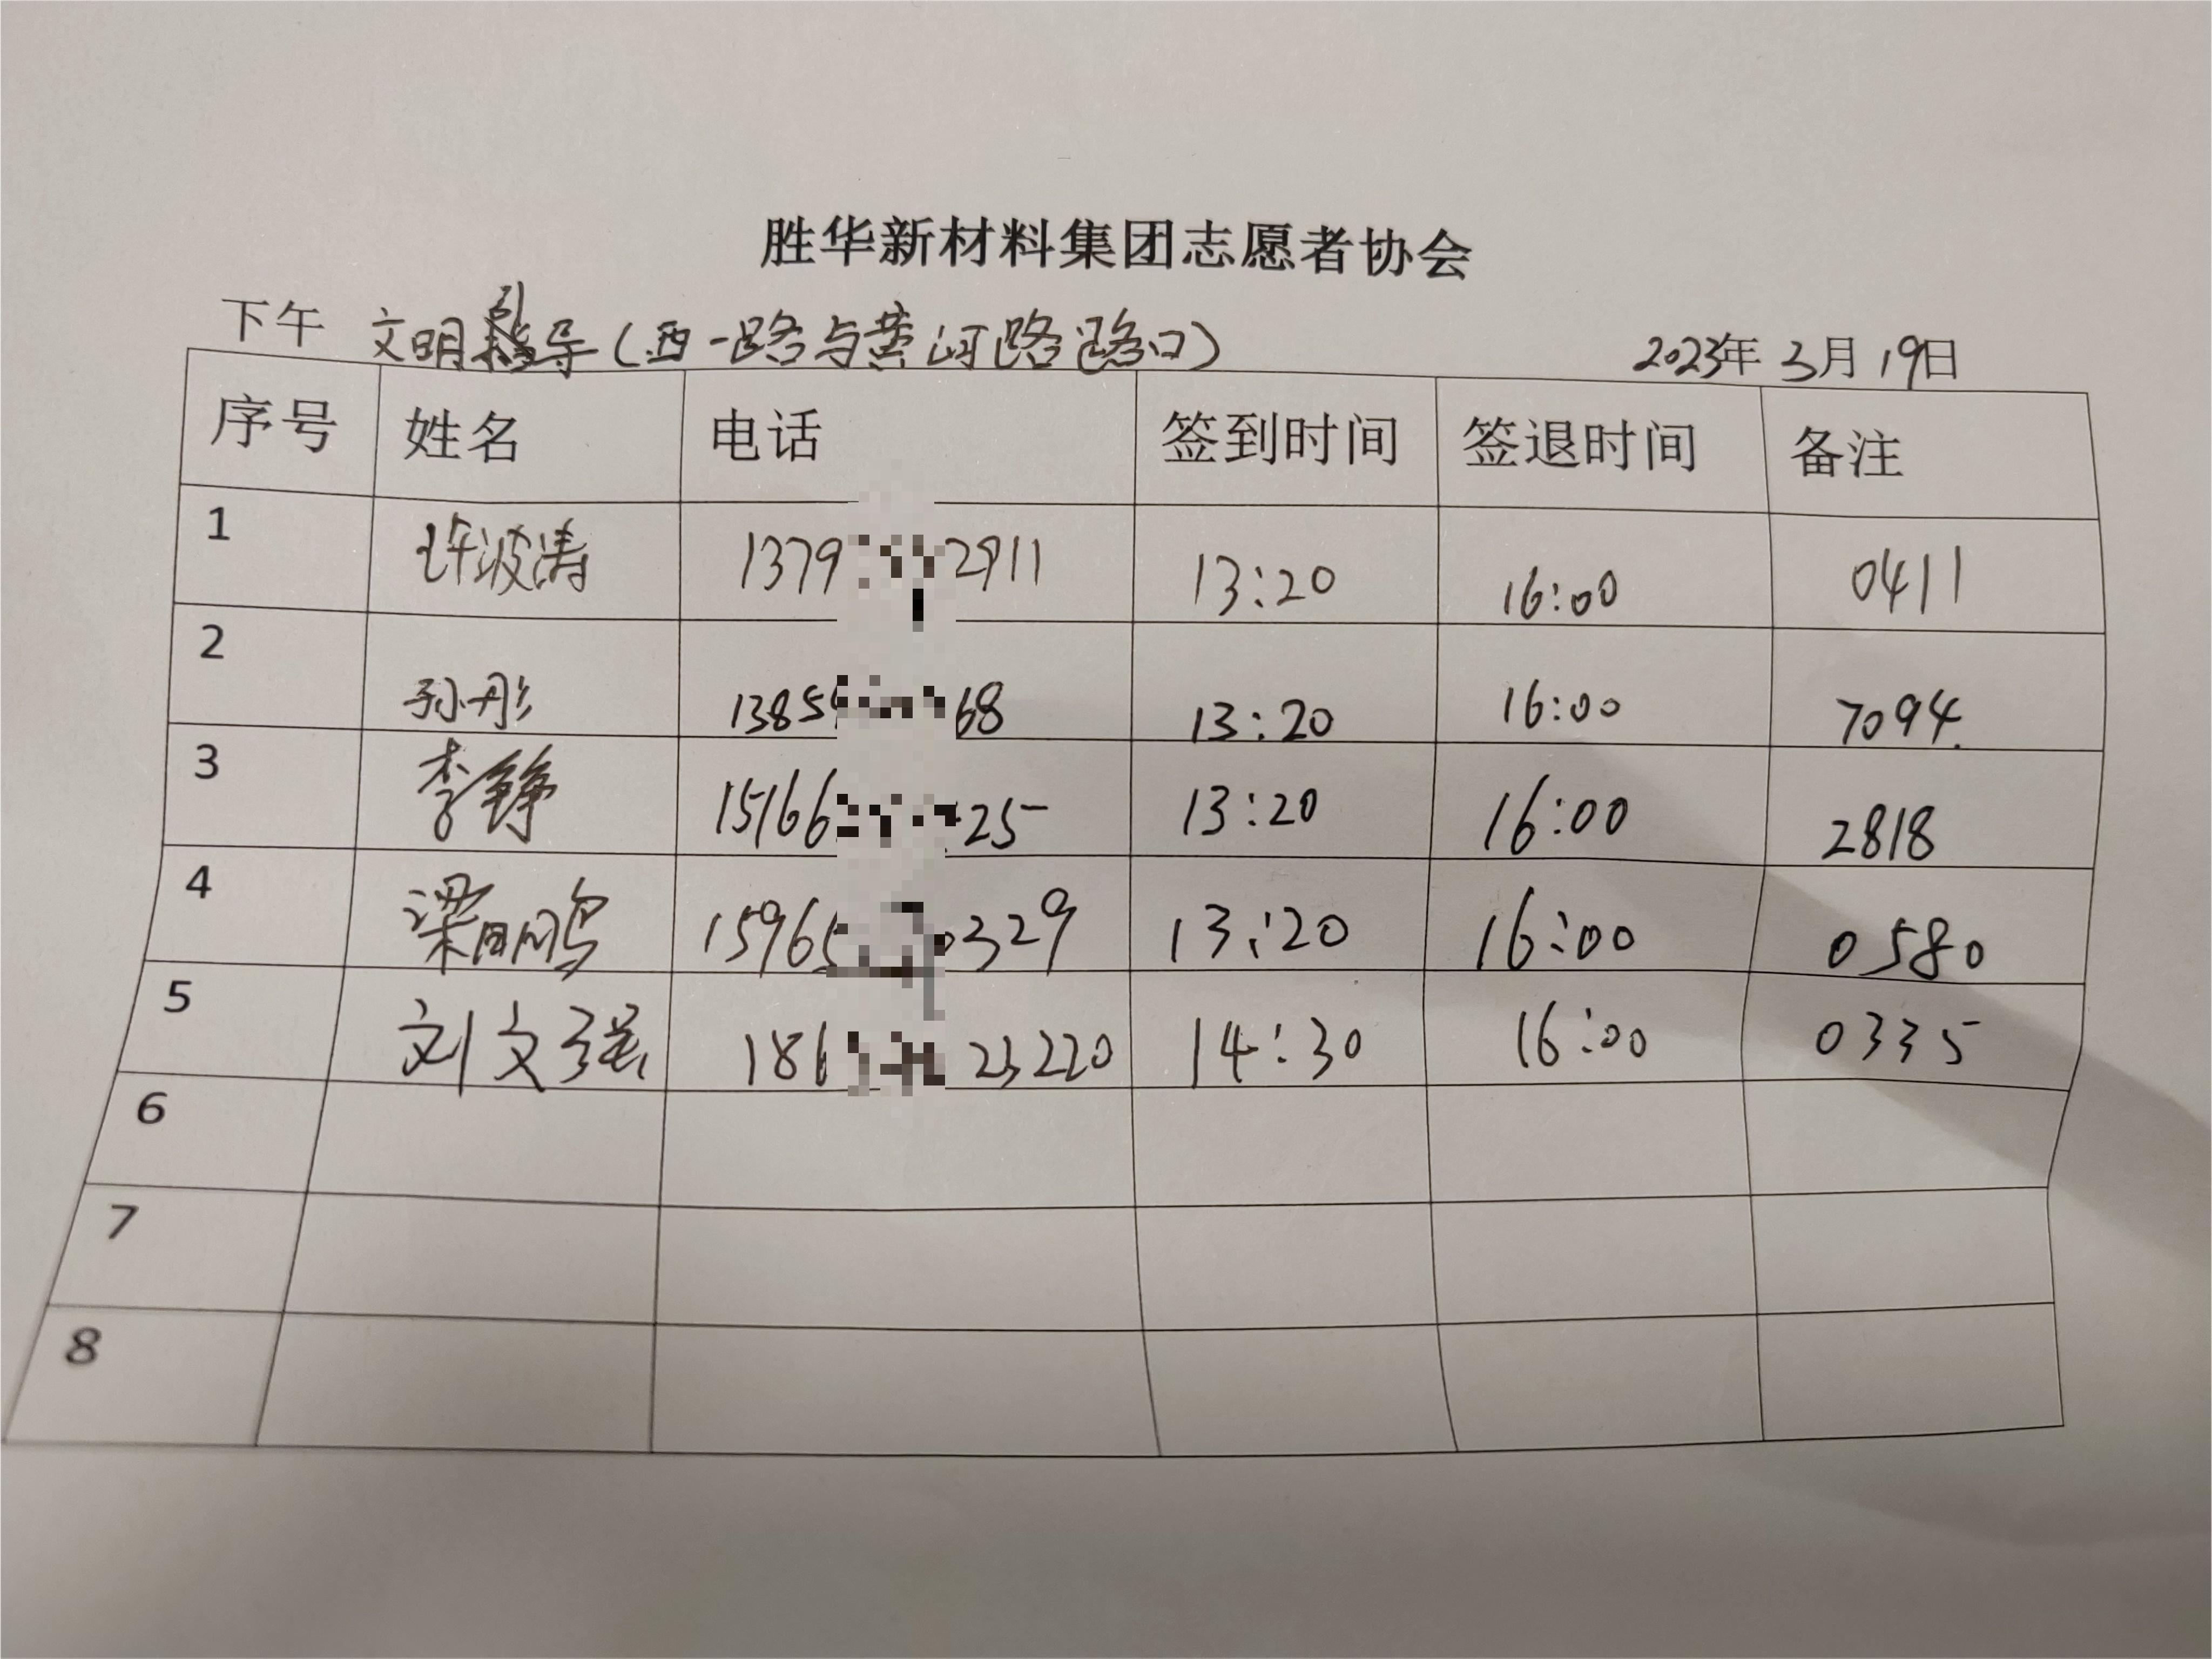 胜华新材料集团志愿者协会
下午 文明引导(西一路与黄河路路口) 2023年3月19日
序号 姓名 电话 签到时间 签退时间 备注
1 许波涛 1379 2911 13:20 16:00 0411
2 孙彤 1385 68 13:20 16:00 7094.
3 李铮 15166 25 13:20 16:00 2818
4 梁鹏 1596 0329 13:20 16:00 0580
5 刘文强 186 23220 14:30 16:00 0335
6
7
8